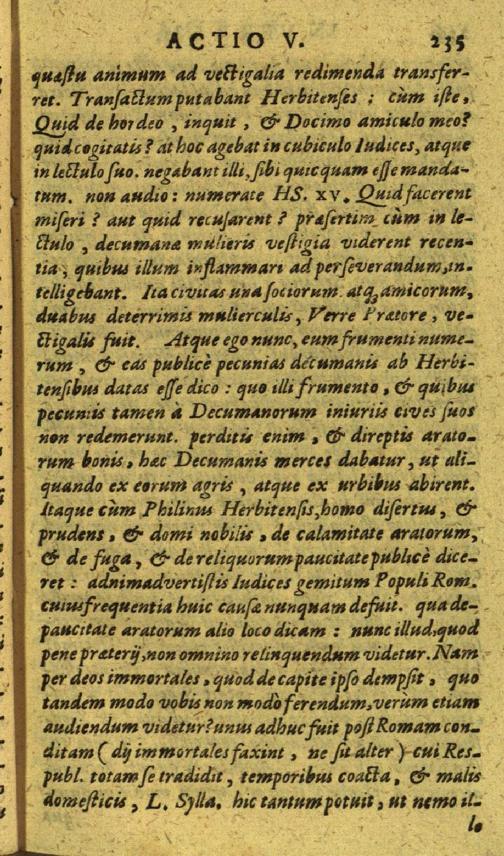 ACTIO V. 235
quæstu animum ad vectigalia redimenda transfer-
ret. Transactum putabant Herbitenses ; cùm iste,
Quid de hordeo , inquit , & Docimo amiculo meo?
quid cogitatis? at hoc agebat in cubiculo Iudices, atque
in lectulo suo. negabant illi, sibi quicquam esse manda-
tum. non audio: numerate HS. xv. Quid facerent
miseri ? aut quid recusarent ? præsertim cùm in le-
ctulo , decumanæ mulieris vestigia viderent recen-
tia, quibus illum inflammari ad perseverandum, in-
telligebant. Ita civitas una sociorum atq; amicorum,
duabus deterrimis mulierculis, Verre Prætore , ve-
ctigalis fuit. Atque ego nunc, eum frumenti nume-
rum , & eas publicè pecunias decumanis ab Herbi-
tensibus datas esse dico : quo illi frumento , & quibus
pecuniis tamen à Decumanorum iniuriis cives suos
non redemerunt. perditis enim , & direptis arato-
rum bonis, hæc Decumanis merces dabatur, ut ali-
quando ex eorum agris , atque ex urbibus abirent.
Itaque cùm Philinus Herbitensis, homo disertus, &
prudens, & domi nobilis , de calamitate aratorum,
& de fuga, & de reliquorum paucitate publicè dice-
ret : adnimadvertistis Iudices gemitum Populi Rom.
cuius frequentia huic causæ nunquam defuit. qua de-
paucitate aratorum alio loco dicam : nunc illud, quod
pene præterij, non omnino relinquendum videtur. Nam
per deos immortales, quod de capite ipso dempsit , quo
tandem modo vobis non modò ferendum, verùm etiam
audiendum videtur? unus adhuc fuit post Romam con-
ditam ( dij immortales faxint , ne sit alter ) cui Res-
publ. totam se tradidit , temporibus coacta, & malis
domesticis, L. Sylla. hic tantum potuit, ut nemo il-
lo